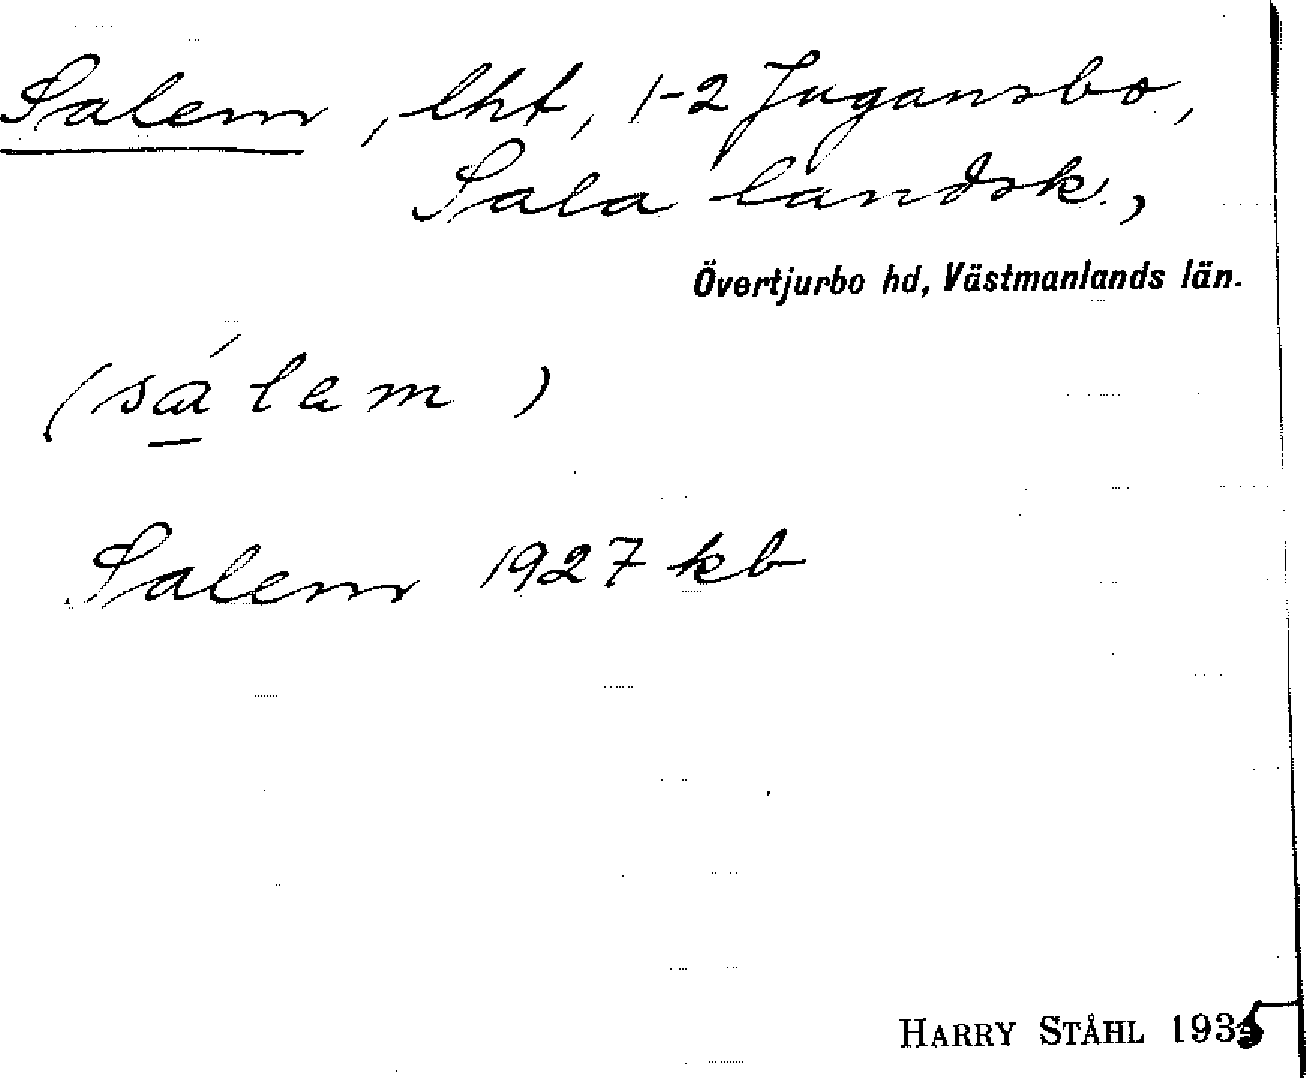 Salem, lht, 1-2 Jugansbo,
Sala landsk.,
Övertjurbo hd, Västmanlands län.
(sálem)
Salem 1927 kb
HARRY STÅHL 1935